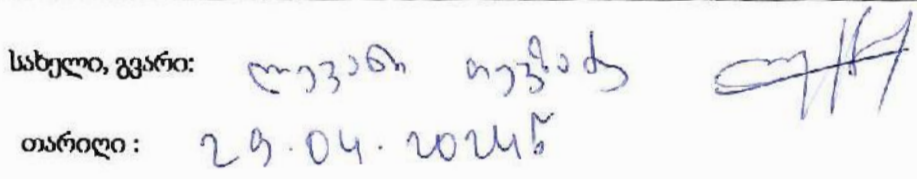 სახელი, გვარი: ლევანი თევზაძე
თარიღი : 29.04.2024წ